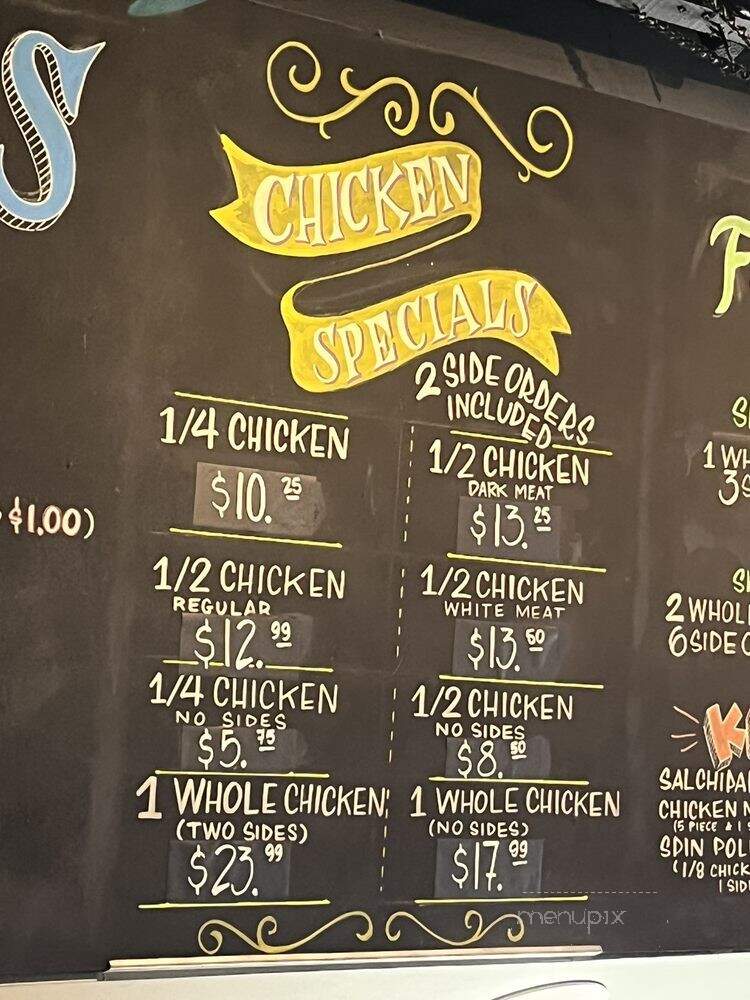 S
CHICKEN
SPECIALS
2 SIDE ORDERS
INCLUDED
1/4 CHICKEN
$10.25
1/2 CHICKEN
REGULAR
$12.99
1/4 CHICKEN
NO SIDES
$5.75
1 WHOLE CHICKEN
(TWO SIDES)
$23.99
1/2 CHICKEN
DARK MEAT
$13.25
1/2 CHICKEN
WHITE MEAT
$13.50
1/2 CHICKEN
NO SIDES
$8.50
1 WHOLE CHICKEN
(NO SIDES)
$17.99
$1.00)
F
S
1 WH
3 S
S
2 WHOL
6 SIDE O
K
SALCHIPA
CHICKEN N
(5 PIECE & 1 S
SPIN POL
(1/8 CHICK
1 SID
menupix